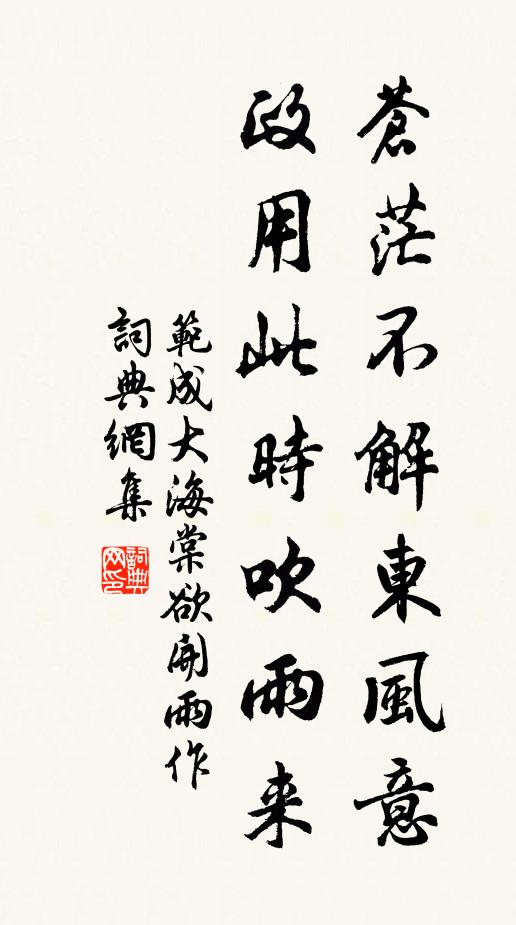 蒼茫不解東風意
政用此時吹雨来
範成大海棠欲開雨作
詞典網集
詞典網印